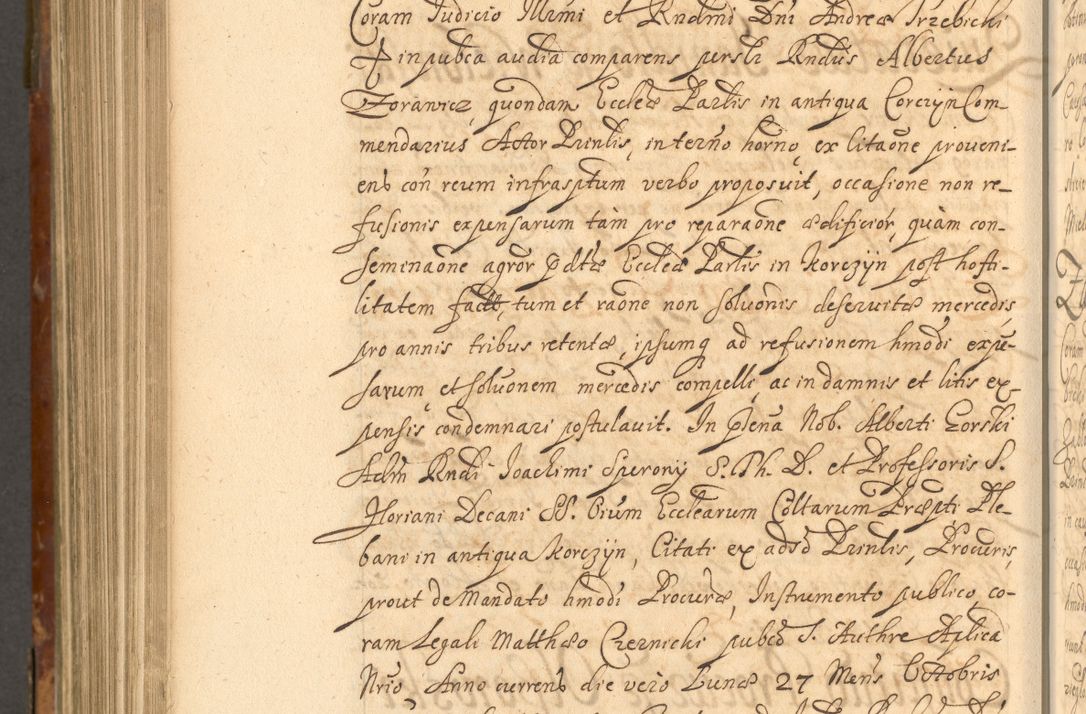 Coram Judicio Illrmi et Rndmi Dni Andreæ Trzebicki
in pubca audia comparens prsli Rndus Albertus
Zoranicz, quondam Ecclæ Parlis in antiqua Corczyn Com-
mendarius Actor Prinlis, in terno horno, ex litaone proveni-
ens con reum infrasptum verbo proposuit, occasione non re-
fusionis expensarum tàm pro reparaone ædificior, quàm con-
seminaone agror pdtæ Ecclæ Parlis in Korczyn post hosti-
litatem fact, tum et raone non soluonis deservitæ mercedis,
pro annis tribus retentæ, ipsumq ad refusionem hmodi expē-
sarum, et soluonem mercedis compelli, ac in damnis et litis ex-
pensis condemnari postulavit. In plena Nob. Alberti Gorski
Adm Rndi Joachimi Sperony S. Th. D. et Professoris S.
Floriani Decani SS. Oium Ecclearum Coltarum Præspti Ple-
bani in antiqua Korczyn, Citati ex adso Prinlis, Procuris,
prout de Mandato hmodi Procuræ, Instrumento publico, co-
ram Legali Matthæo Czernicki pubco S. Authre Aplica
Nrio, Anno currens die vero Lunæ 27 Mens Octobris